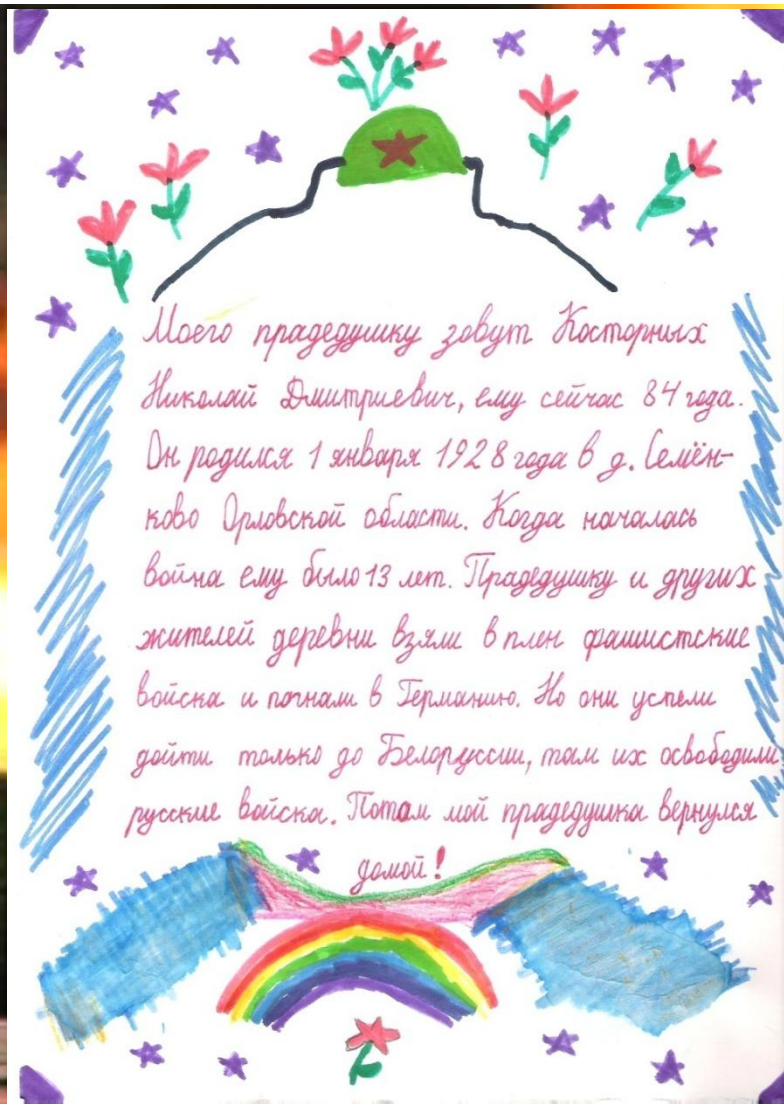 Моего прадедушку зовут Косторных
Николай Дмитриевич, ему сейчас 84 года.
Он родился 1 января 1928 года в д. Семён-
ково Орловской области. Когда началась
война ему было 13 лет. Прадедушку и других
жителей деревни взяли в плен фашистские
войска и погнали в Германию. Но они успели
дойти только до Белоруссии, там их освободили
русские войска. Потом мой прадедушка вернулся
домой!